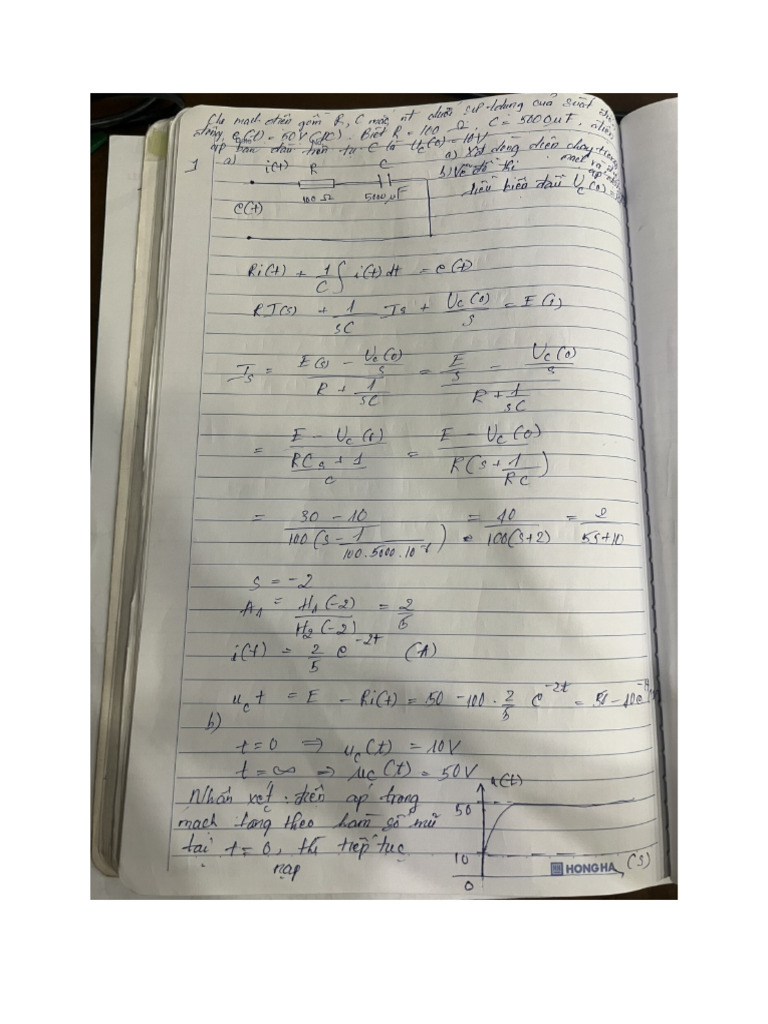 Cho mạch điện gồm R, C mắc nt dưới tác dụng của suất điện
động e(t) = 50V (DC). Biết R = 100 Ω. C = 5000 μF. điện
áp ban đầu trên tụ C là Uc(0) = 10V
a) dòng điện chạy trong
mạch và
b) Vẽ đồ thị
điều kiện đầu Uc(0) =
1 a) i(t) R C
100 Ω 5000 μF
e(t)
Ri(t) + 1/C ∫ i(t)dt = e(t)
RI(s) + 1/sC Is + Uc(0)/s = E(s)
Is = (E(s) - Uc(0)/s)/(R + 1/sC) = (E/s - Uc(0)/s)/(R + 1/sC)
= (E - Uc(0))/((RCs + 1)/C) = (E - Uc(0))/(R(s + 1/RC))
= (30 - 10)/(100(s - 1/(100.5000.10^-6))) = 40/(100(s+2)) = 2/(5s+10)
s = -2
A1 = H1(-2)/H2(-2) = 2/5
i(t) = 2/5 e^-2t (A)
uc t = E - Ri(t) = 50 - 100 . 2/5 e^-2t = 50 - 40e
b)
t = 0 ⇒ uc(t) = 10V
t = ∞ ⇒ uc(t) = 50V
Nhận xét: điện áp trong
mạch tăng theo hàm số mũ
tại t = 0, thì tiếp tục
nạp
u(t)
50
10
0
(s)
HONG HA